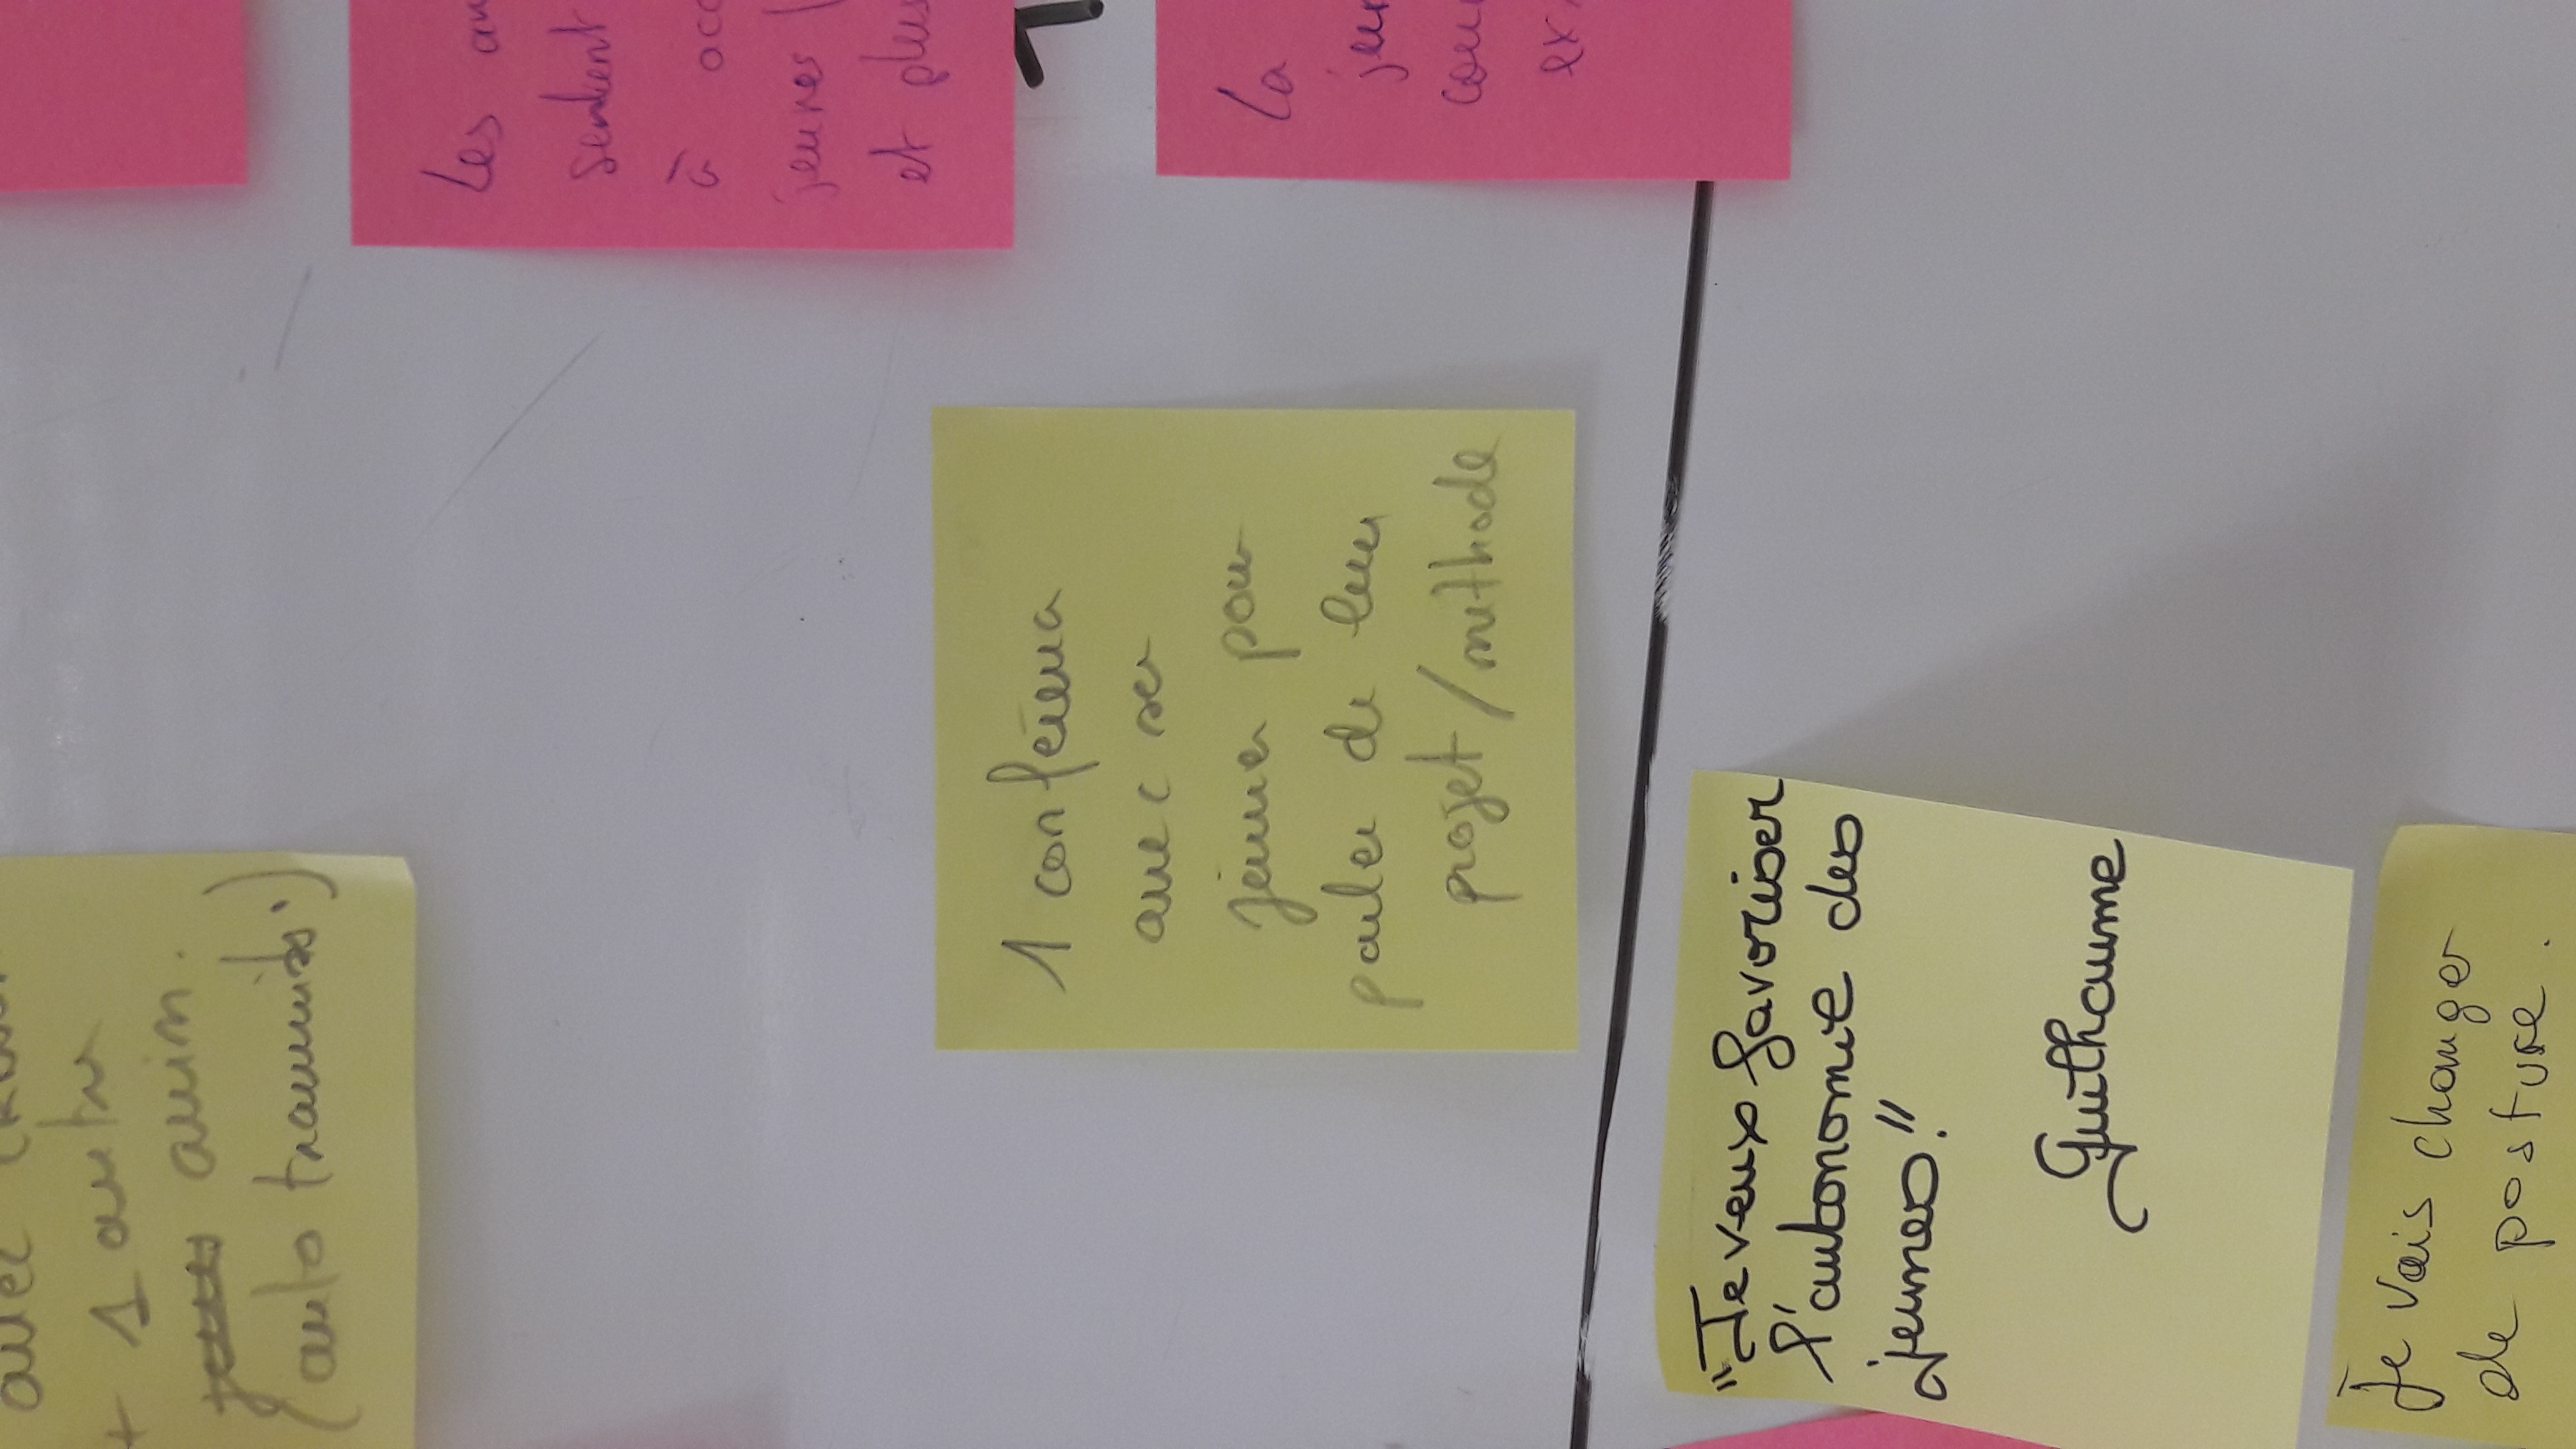 avec
+ 1 autre
anim.
(auto transmiss°)
Les an
sentent
à acc
jeunes
et plus
1 conférence
avec ses
jeunes pour
parler de leur
projet/méthode
La
jeu
cou
ex
"Je veux favoriser
l'autonomie des
jeunes!"
Guilhaume
Je vais changer
de posture.